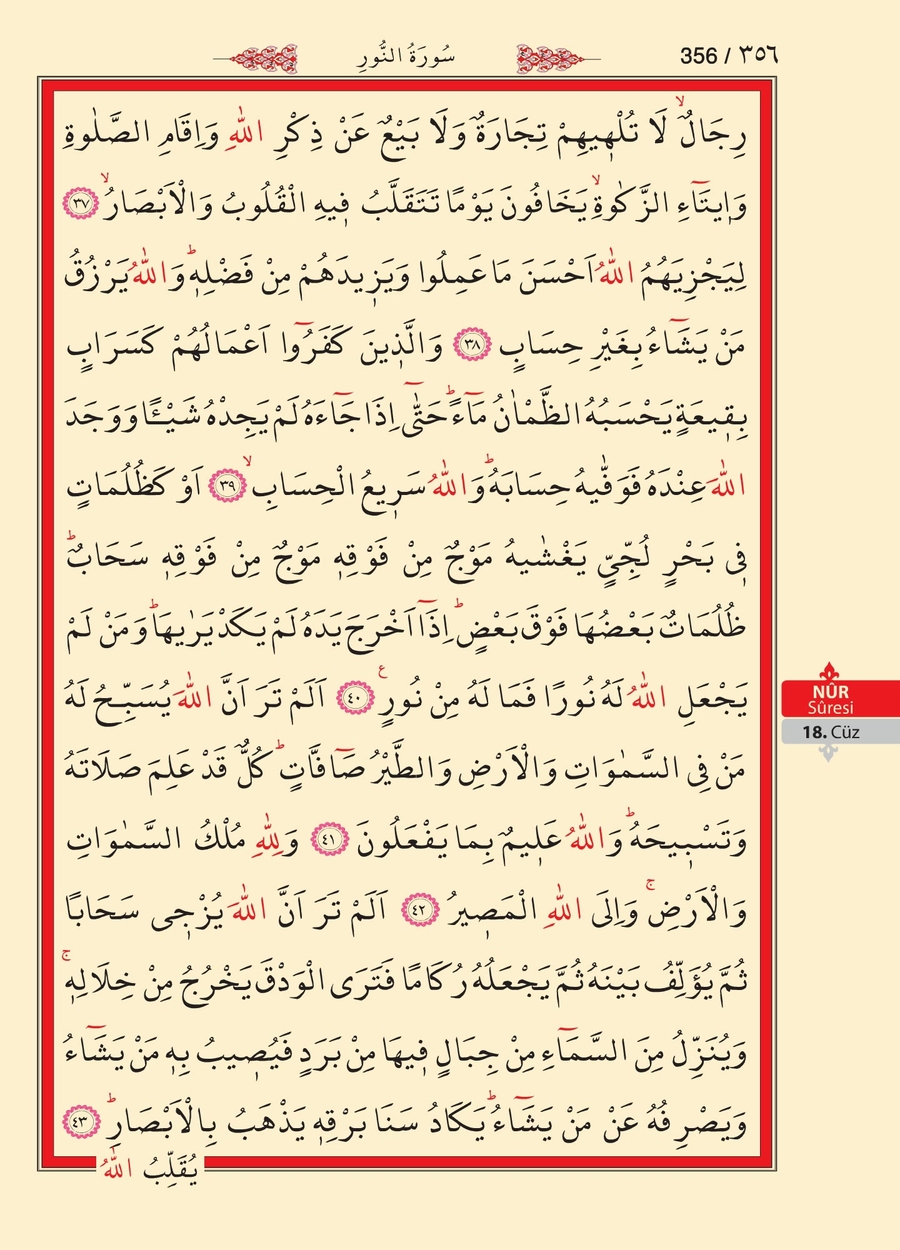 356 / ٣٥٦
سُورَةُ النُّورِ
رِجَالٌۙ لَا تُلْه۪يهِمْ تِجَارَةٌ وَلَا بَيْعٌ عَنْ ذِكْرِ اللّٰهِ وَاِقَامِ الصَّلٰوةِ
وَا۪يتَٓاءِ الزَّكٰوةِۙ يَخَافُونَ يَوْمًا تَتَقَلَّبُ ف۪يهِ الْقُلُوبُ وَالْاَبْصَارُۙ ﴿٣٧﴾
لِيَجْزِيَهُمُ اللّٰهُ اَحْسَنَ مَا عَمِلُوا وَيَز۪يدَهُمْ مِنْ فَضْلِه۪ۜ وَاللّٰهُ يَرْزُقُ
مَنْ يَشَٓاءُ بِغَيْرِ حِسَابٍ ﴿٣٨﴾ وَالَّذ۪ينَ كَفَرُٓوا اَعْمَالُهُمْ كَسَرَابٍ
بِق۪يعَةٍ يَحْسَبُهُ الظَّمْاٰنُ مَٓاءًۜ حَتّٰٓى اِذَا جَٓاءَهُ لَمْ يَجِدْهُ شَيْـًٔا وَوَجَدَ
اللّٰهَ عِنْدَهُ فَوَفّٰيهُ حِسَابَهُۜ وَاللّٰهُ سَر۪يعُ الْحِسَابِۙ ﴿٣٩﴾ اَوْ كَظُلُمَاتٍ
ف۪ي بَحْرٍ لُجِّيٍّ يَغْشٰيهُ مَوْجٌ مِنْ فَوْقِه۪ مَوْجٌ مِنْ فَوْقِه۪ سَحَابٌۜ
ظُلُمَاتٌ بَعْضُهَا فَوْقَ بَعْضٍۜ اِذَٓا اَخْرَجَ يَدَهُ لَمْ يَكَدْ يَرٰيهَاۜ وَمَنْ لَمْ
يَجْعَلِ اللّٰهُ لَهُ نُورًا فَمَا لَهُ مِنْ نُورٍ ع ﴿٤٠﴾ اَلَمْ تَرَ اَنَّ اللّٰهَ يُسَبِّحُ لَهُ
مَنْ فِي السَّمٰوَاتِ وَالْاَرْضِ وَالطَّيْرُ صَٓافَّاتٍۜ كُلٌّ قَدْ عَلِمَ صَلَاتَهُ
وَتَسْب۪يحَهُۜ وَاللّٰهُ عَل۪يمٌ بِمَا يَفْعَلُونَ ﴿٤١﴾ وَلِلّٰهِ مُلْكُ السَّمٰوَاتِ
وَالْاَرْضِۚ وَاِلَى اللّٰهِ الْمَص۪يرُ ﴿٤٢﴾ اَلَمْ تَرَ اَنَّ اللّٰهَ يُزْج۪ي سَحَابًا
ثُمَّ يُؤَلِّفُ بَيْنَهُ ثُمَّ يَجْعَلُهُ رُكَامًا فَتَرَى الْوَدْقَ يَخْرُجُ مِنْ خِلَالِه۪ۚ
وَيُنَزِّلُ مِنَ السَّمَٓاءِ مِنْ جِبَالٍ ف۪يهَا مِنْ بَرَدٍ فَيُص۪يبُ بِه۪ مَنْ يَشَٓاءُ
وَيَصْرِفُهُ عَنْ مَنْ يَشَٓاءُۜ يَكَادُ سَنَا بَرْقِه۪ يَذْهَبُ بِالْاَبْصَارِۜ ﴿٤٣﴾
يُقَلِّبُ اللّٰهُ
NÛR
Sûresi
18. Cüz